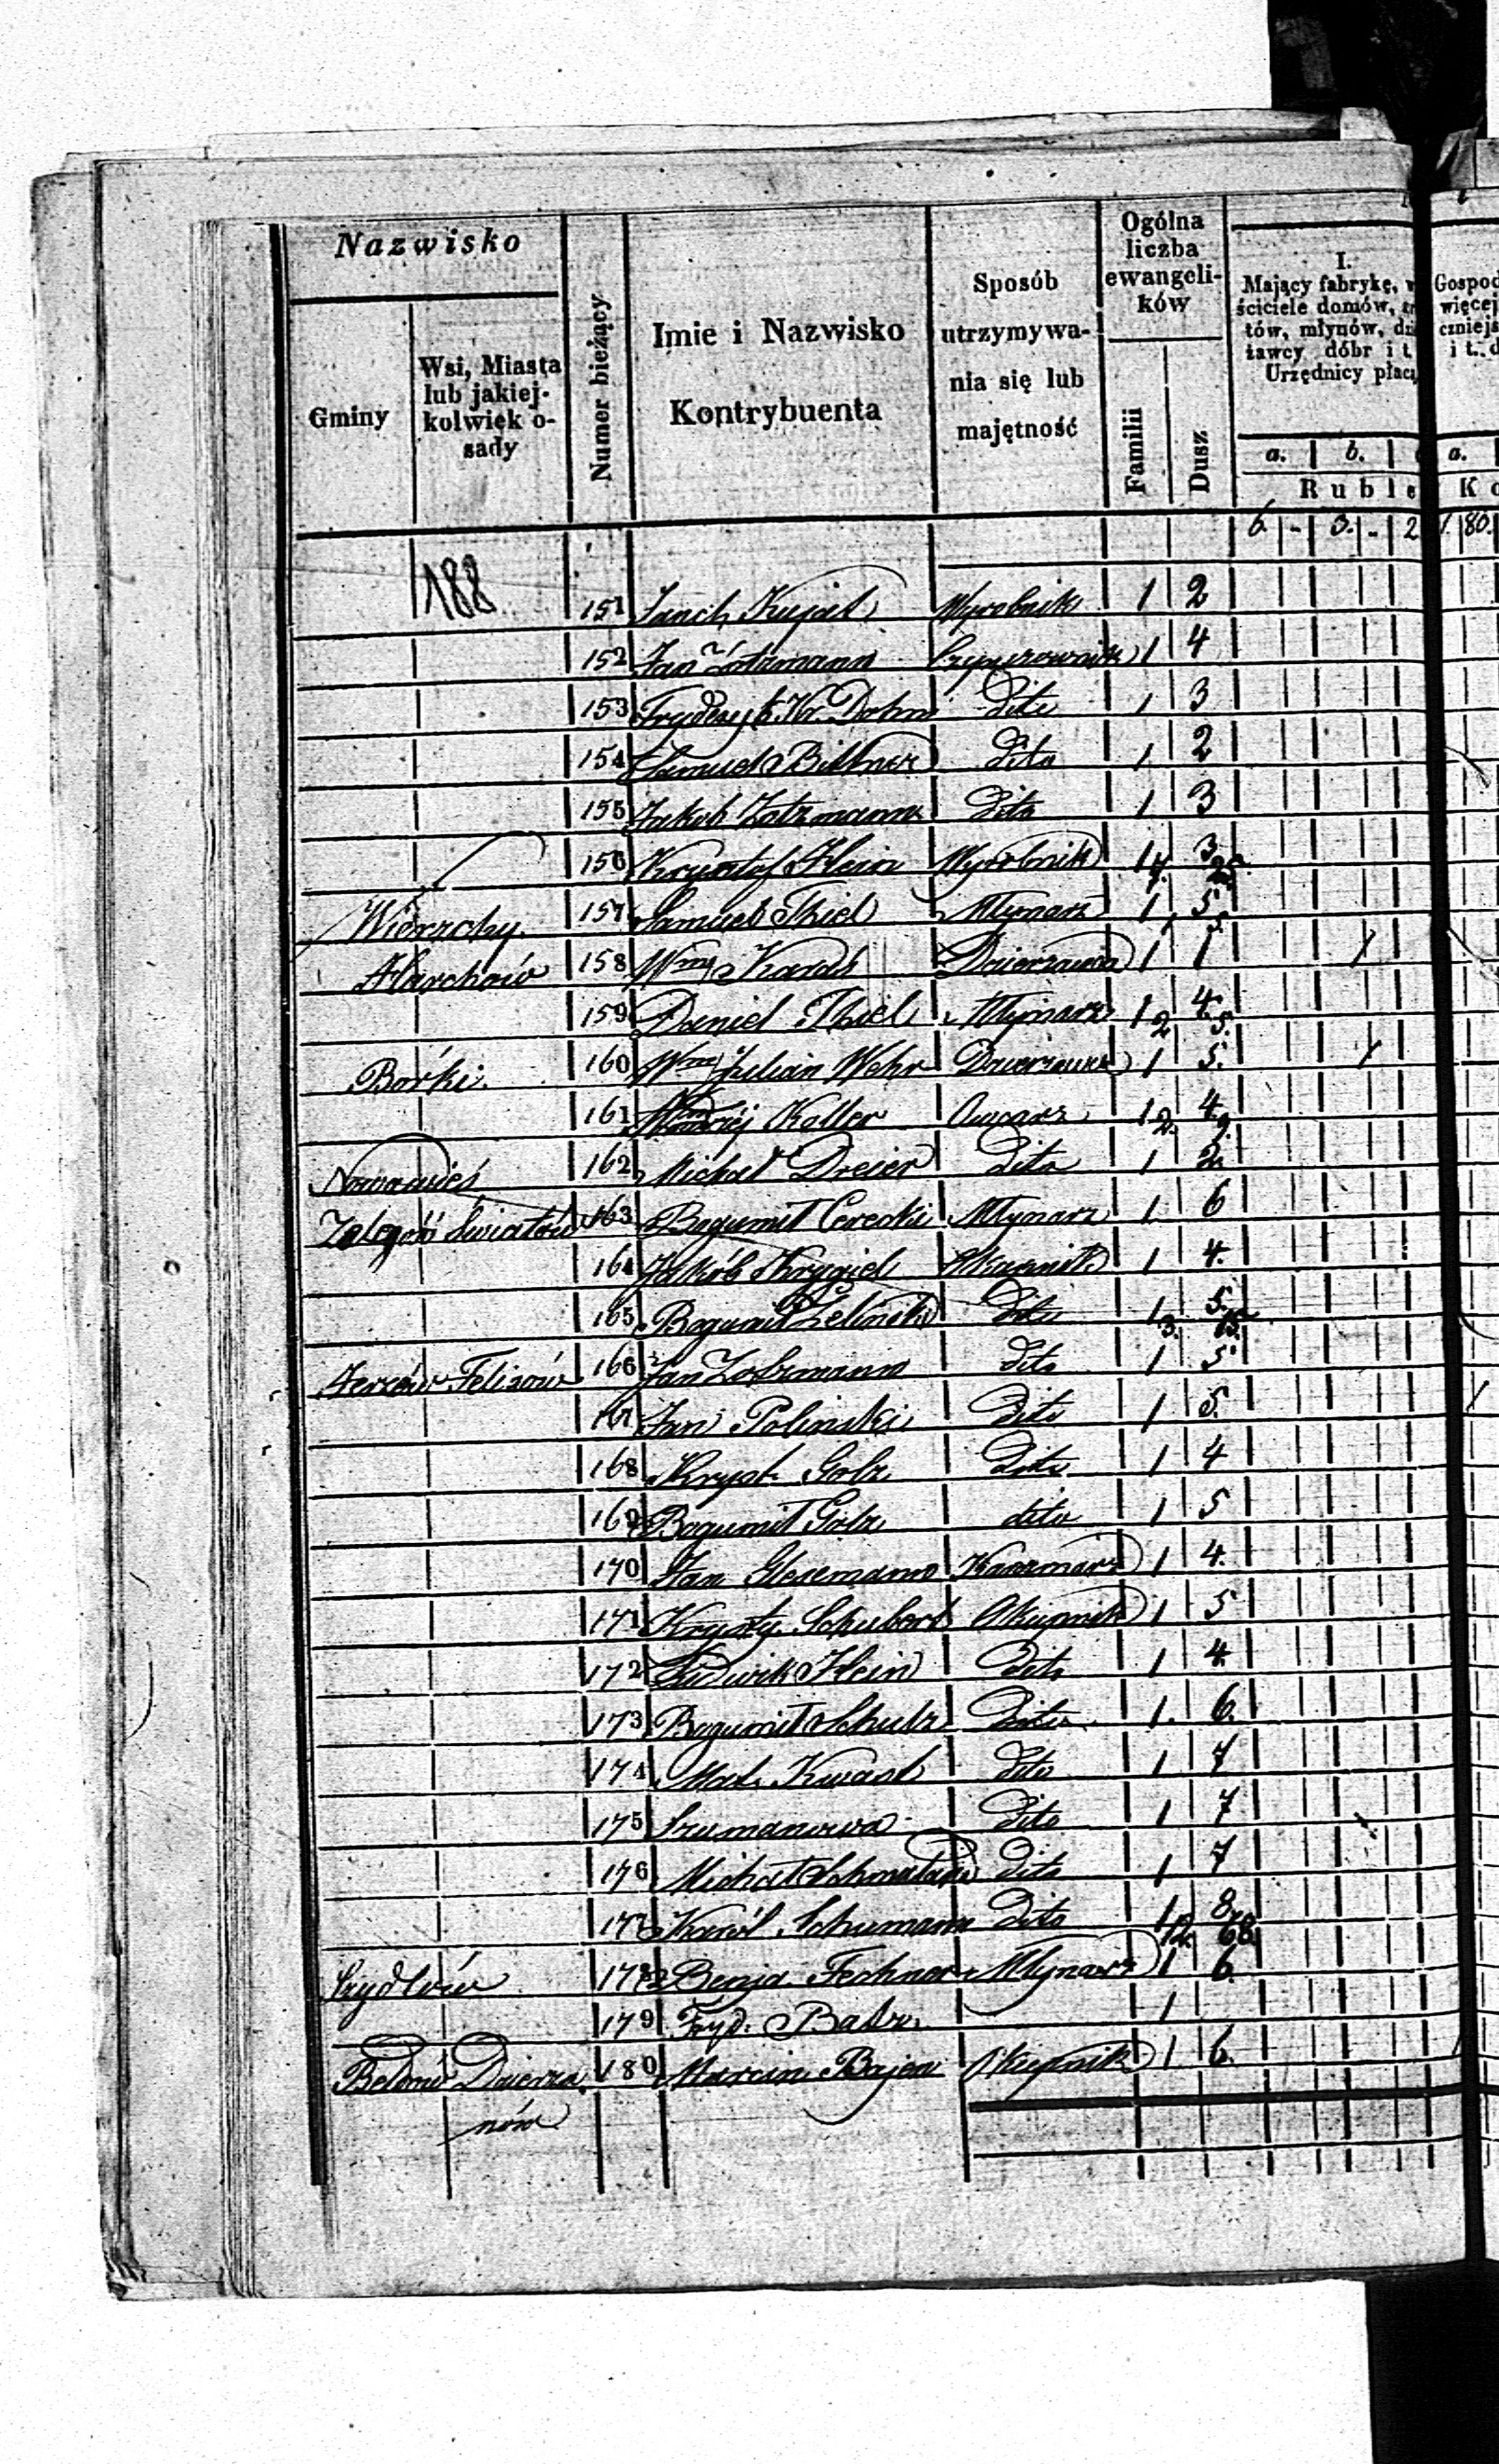 Nazwisko
Gminy
Wsi, Miasta
lub jakiej-
kolwiek o-
sady
Numer bieżący
Imie i Nazwisko
Kontrybuenta
Sposób
utrzymywa-
nia się lub
majętność
Ogólna
liczba
ewangeli-
ków
Familii
Dusz
I.
Mający fabrykę, w
ściciele domów,
tów, młynów,
tawcy dóbr i t
Urzędnicy płac
Gospod
więcej
czniejs
i t. d
a. b. a.
Ruble Ko
6. - 3. - 2 1. 80.
188
151 Kujat Wyrobnik 1 2
152 Jan Zotzmann Czynszownik 1 4
153 Fryderyk Kr. Dohm dito 1 3
154 Samuel Bittner dito 1 2
155 Jakob Zotzmann dito 1 3
156 Krysztof Klein Wyrobnik 1 3
Wierzchy 157 Samuel Thiel Młynarz 1 5
5.
Marchów 158 Wny Dzierzawca 1 1 1
159 Daniel Thiel Młynarz 1 4
2 5.
Borki 160 Wny Julian Wehr Dzierzawca 1 5. 1
161 Koller Owczarz 1 4
2. 9.
Nowawieś 162 Michał Dreier dito 1 2
Światów 163 Bogumił Cerecki Młynarz 1 6
164 Jakób Krygiel Okupnik 1 4.
165 Bogumił Zelinski dito 1 5.
3. 15.
Jerzów Felixów 166 Jan Zotzmann dito 1 5
167 Jan Polinski dito 1 5. 1
168 Kryst. Golz dito 1 4
169 Bogumił Golz dito 1 5
170 Jan Karczmarz 1 4.
171 Schubert Okupnik 1 5
172 Ludwik Klein dito 1 4
173 Bogumił Schulz dito 1. 6.
174 Kwast dito 1 7
175 Szumanowa dito 1 7
176 Michał dito 1 7
177 Karól Schumann dito 1 8
12. 68.
Szydłów 178 Benja Fechner Młynarz 1 6
179 Fryd. 1
Bełdów Dzierza 180 Marcin Okupnik 1 6
nów